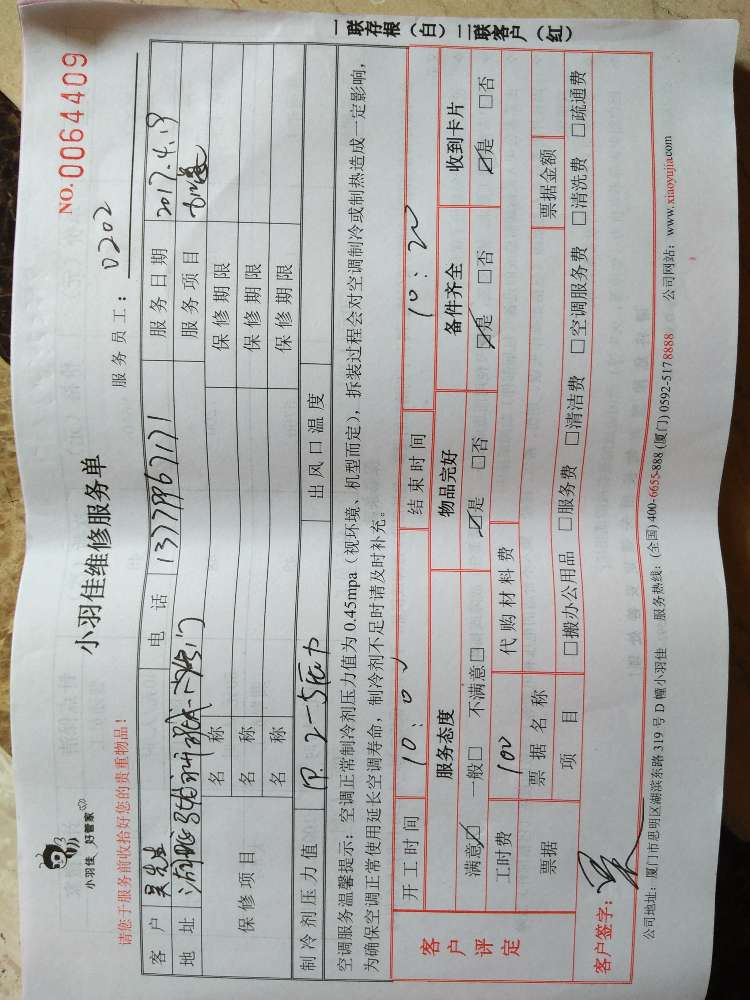 小羽佳 好管家
小羽佳维修服务单
NO.0064409
请您于服务前收拾好您的贵重物品!
服务员工: 0202
客户 吴先生 电话 13779967171 服务日期 2017.4.19
地址 服务项目
保修项目 名称 保修期限
名称 保修期限
名称 保修期限
制冷剂压力值 出风口温度
空调服务温馨提示:空调正常制冷剂压力值为0.45mpa(视环境、机型而定),拆装过程会对空调制冷或制热造成一定影响,
为确保空调正常使用延长空调寿命,制冷剂不足时请及时补充。
客户评定 开工时间 10:00 结束时间 10:20
服务态度 物品完好 备件齐全 收到卡片
满意☑ 一般□ 不满意□ ☑是 □否 ☑是 □否 ☑是 □否
工时费 100 代购材料费
票据 票据名称 票据金额
项目 □搬办公用品 □服务费 □清洁费 □空调服务费 □清洗费 □疏通费
客户签字:
公司地址:厦门市思明区湖滨东路319号D幢小羽佳 服务热线:(全国)400-6655-888 (厦门)0592-5178888 公司网站:www.xiaoyujia.com
一联存根(白)二联客户(红)